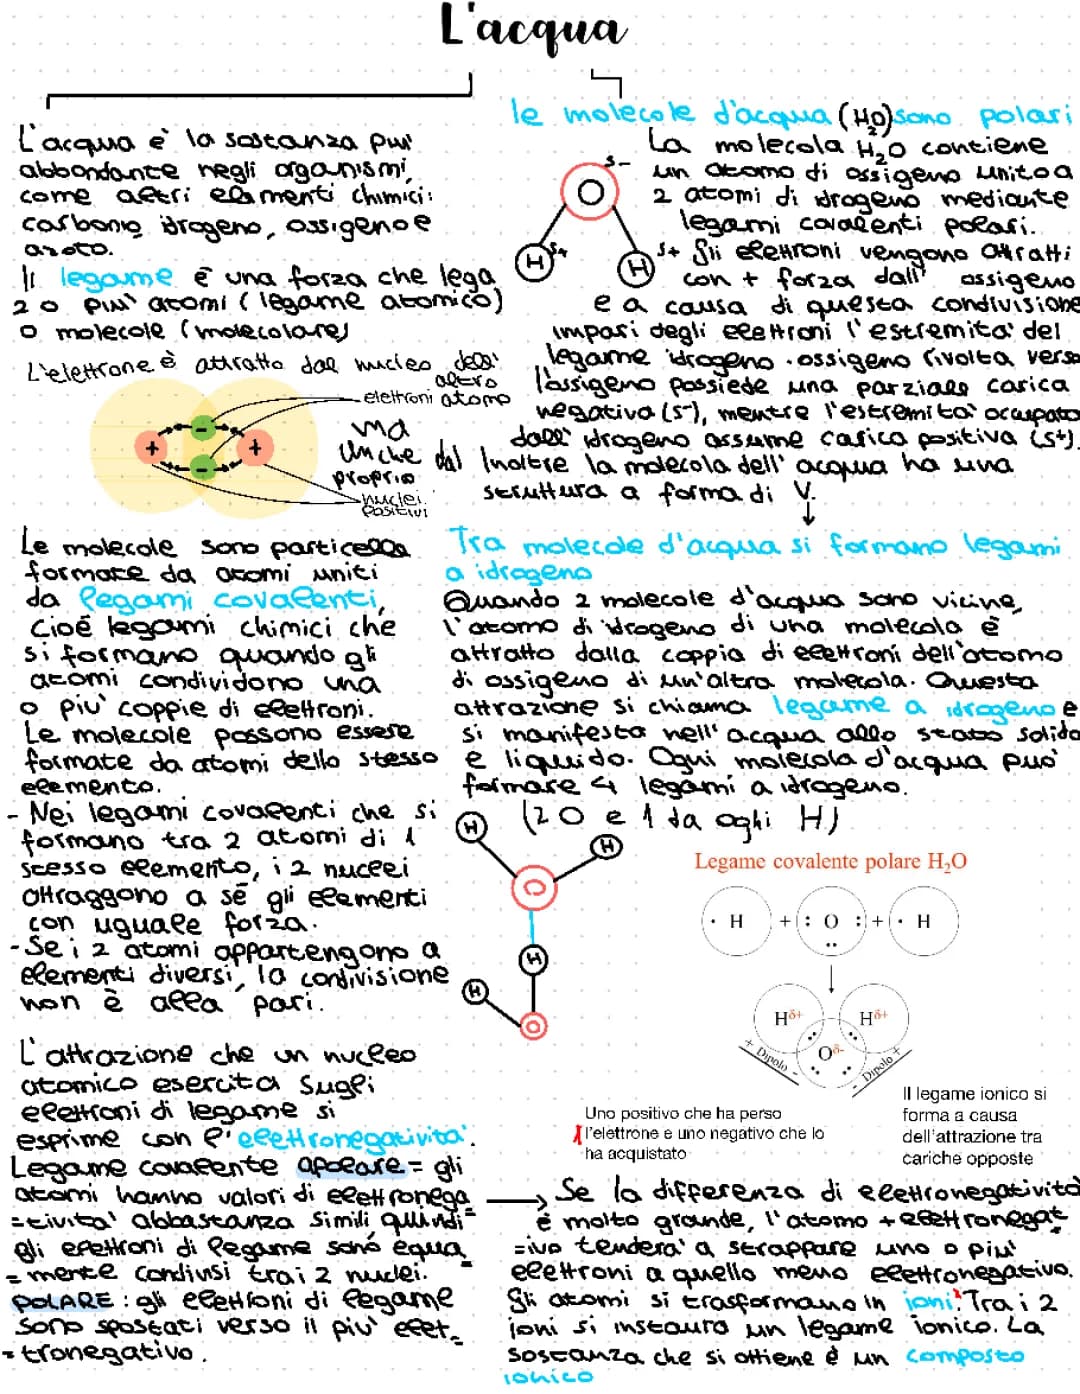 L'acqua
L'acqua è la sostanza piu'
abbondante negli organismi,
come altri elementi chimici:
carbonio, idrogeno, ossigeno e
azoto.
Il legame è una forza che lega
2 o piu' atomi (legame atomico)
o molecole (molecolare)
L'elettrone è attratto dal nucleo dell'
altro
atomo
elettroni
ma
anche dal
proprio
nuclei
positivi
+
-
+
-
Le molecole sono particelle
formate da atomi uniti
da legami covalenti,
cioè legami chimici che
si formano quando gli
atomi condividono una
o piu' coppie di elettroni.
Le molecole possono essere
formate da atomi dello stesso
elemento.
- Nei legami covalenti che si
formano tra 2 atomi di 1
stesso elemento, i 2 nuclei
attraggono a sé gli elementi
con uguale forza.
- Se i 2 atomi appartengono a
elementi diversi, la condivisione
non è alla pari.
L'attrazione che un nucleo
atomico esercita sugli
elettroni di legame si
esprime con l'elettronegativita'.
Legame covalente apolare = gli
atomi hanno valori di elettronega
=tivita' abbastanza simili quindi
gli elettroni di legame sono equa
=mente condivisi tra i 2 nuclei.
POLARE: gli elettroni di legame
sono spostati verso il piu' elet_
=tronegativo.
le molecole d'acqua (H₂O) sono polari
La molecola H₂O contiene
un atomo di ossigeno unito a
2 atomi di idrogeno mediante
legami covalenti polari.
Gli elettroni vengono attratti
con + forza dall' ossigeno
e a causa di questa condivisione
impari degli elettroni l'estremita' del
legame idrogeno-ossigeno rivolta verso
l'ossigeno possiede una parziale carica
negativa (s-), mentre l'estremita' occupata
dall' idrogeno assume carica positiva (s+).
Inoltre la molecola dell' acqua ha una
struttura a forma di V.
s-
O
H
s+
H
s+
Tra molecole d'acqua si formano legami
a idrogeno
Quando 2 molecole d'acqua sono vicine,
l'atomo di idrogeno di una molecola è
attratto dalla coppia di elettroni dell'atomo
di ossigeno di un'altra molecola. Questa
attrazione si chiama legame a idrogeno e
si manifesta nell' acqua allo stato solido
e liquido. Ogni molecola d'acqua puo'
formare 4 legami a idrogeno.
(2 O e 1 da ogni H)
H
H
O
H
H
O
Legame covalente polare H₂O
· H + : O : + · H
Hδ+ Hδ+
Oδ-
+ Dipolo -
- Dipolo +
Uno positivo che ha perso
l'elettrone e uno negativo che lo
ha acquistato
Il legame ionico si
forma a causa
dell'attrazione tra
cariche opposte
Se la differenza di elettronegativita'
è molto grande, l'atomo + elettronegat
=ivo tendera' a strappare uno o piu'
elettroni a quello meno elettronegativo.
Gli atomi si trasformano in ioni. Tra i 2
ioni si instaura un legame ionico. La
sostanza che si ottiene è un composto
ionico